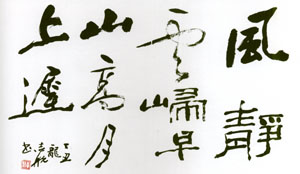 風靜
雲歸早
山高月
上遲